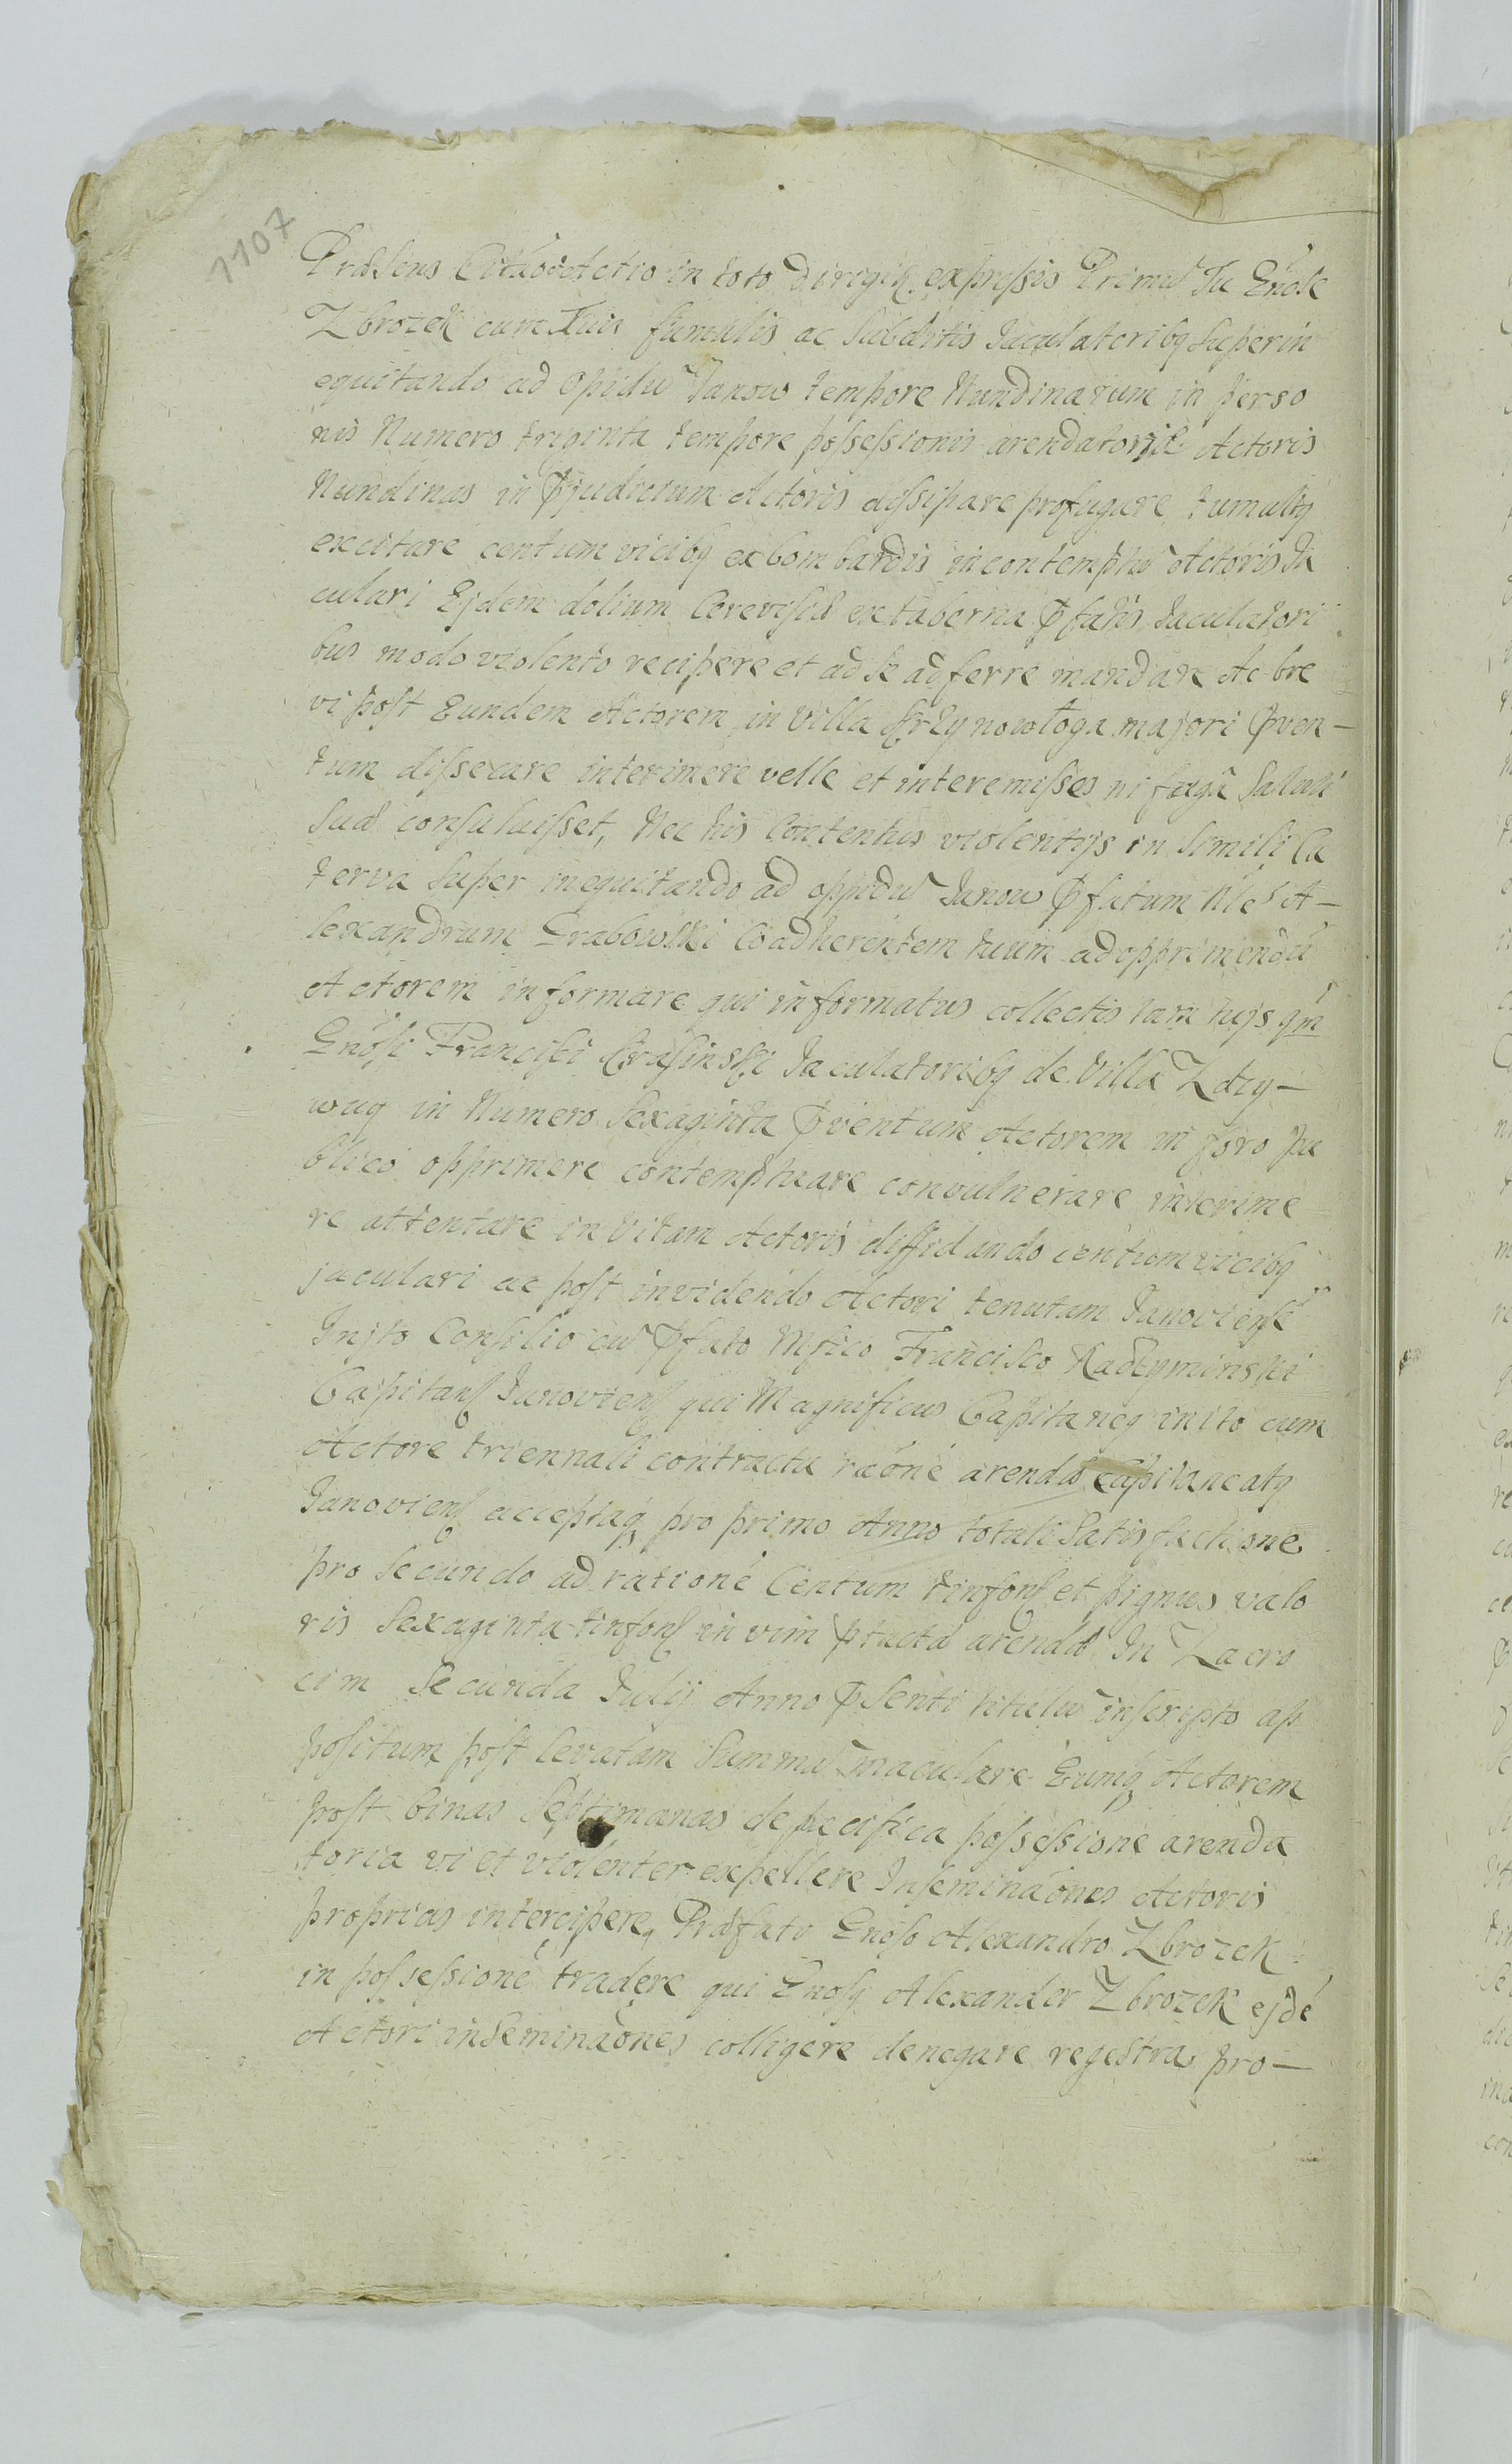 1107
Præsens Citaõ et Actio in toto dirigit expressis Primũ Tu Gnõse
Zbrozek cum Tuis famulis ac Subditis Jaculatoribq Superin
equitando ad Opidũ Janow tempore Nundinarum in perso
nis Numero triginta tempore possessionis arendatoriæ Actoris
Nundinas in pjudicium Actoris dissipare profugare tumultq
excitare centum vicibq ex bombardis in contemptũ Actoris Ja
culari Ejdem dolium Cerevisiæ ex taberna pfatis Jaculatori
bus modo violento recipere et ad se adferre mandare Ac bre
vi post Eundem Actorem in Villa Krzynowłoga majori pven-
tum dissecare interimere velle et interemisses ni fugâ Saluti
Suæ consuluisset, Nec his Contentus violentijs in Simili Ca
terva Super inequitando ad oppidũ Janow pfatum Nlẽ A-
lexandrum Grabowski Coadherentem tuum ad opprimendũ
Actorem informare qui informatus collectis tam tujs qm
Gnõsi Francisci Krasinski Jaculatoribq de Villa Zdzy-
wuy in Numero Sexaginta pventum Actorem in foro Pu
blico opprimere contemptuare convulnerare interime
re attentare in Vitam Actoris diffidando centum vicibq
jaculari ac post invidendo Actori tenutam Janoviensẽ
Injto Consilio cũ pfato Mfico Francisco Radzyminski
Capitane Janovien qui Magnificus Capitaneq inito cum
Actore triennali contractu rãone arendæ Capitaneatq
Janovien acceptaq pro primo Anno totali Satisfactione
pro Secundo ad rationẽ Centum tinfon et pignus valo
ris Sexaginta tinfon in vim ptactæ arendæ In Zacro
cim Secunda Julij Anno pSenti titulũ inscripto ap
positum post levatam Summã maculare Eumq Actorem
post binas Septimanas de pacifica possessione arenda
toria vi et violenter expellere Inseminãones Actoris
proprias intercipere, Præfato Gnõso Alexandro Zbrozek
in possessionẽ tradere qui Gnõsq Alexander Zbrozek ejdẽ
Actori inseminãones colligere denegare regestra pro-